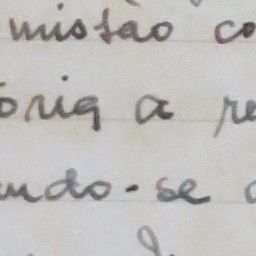 missão co
óric a re
ndo-se